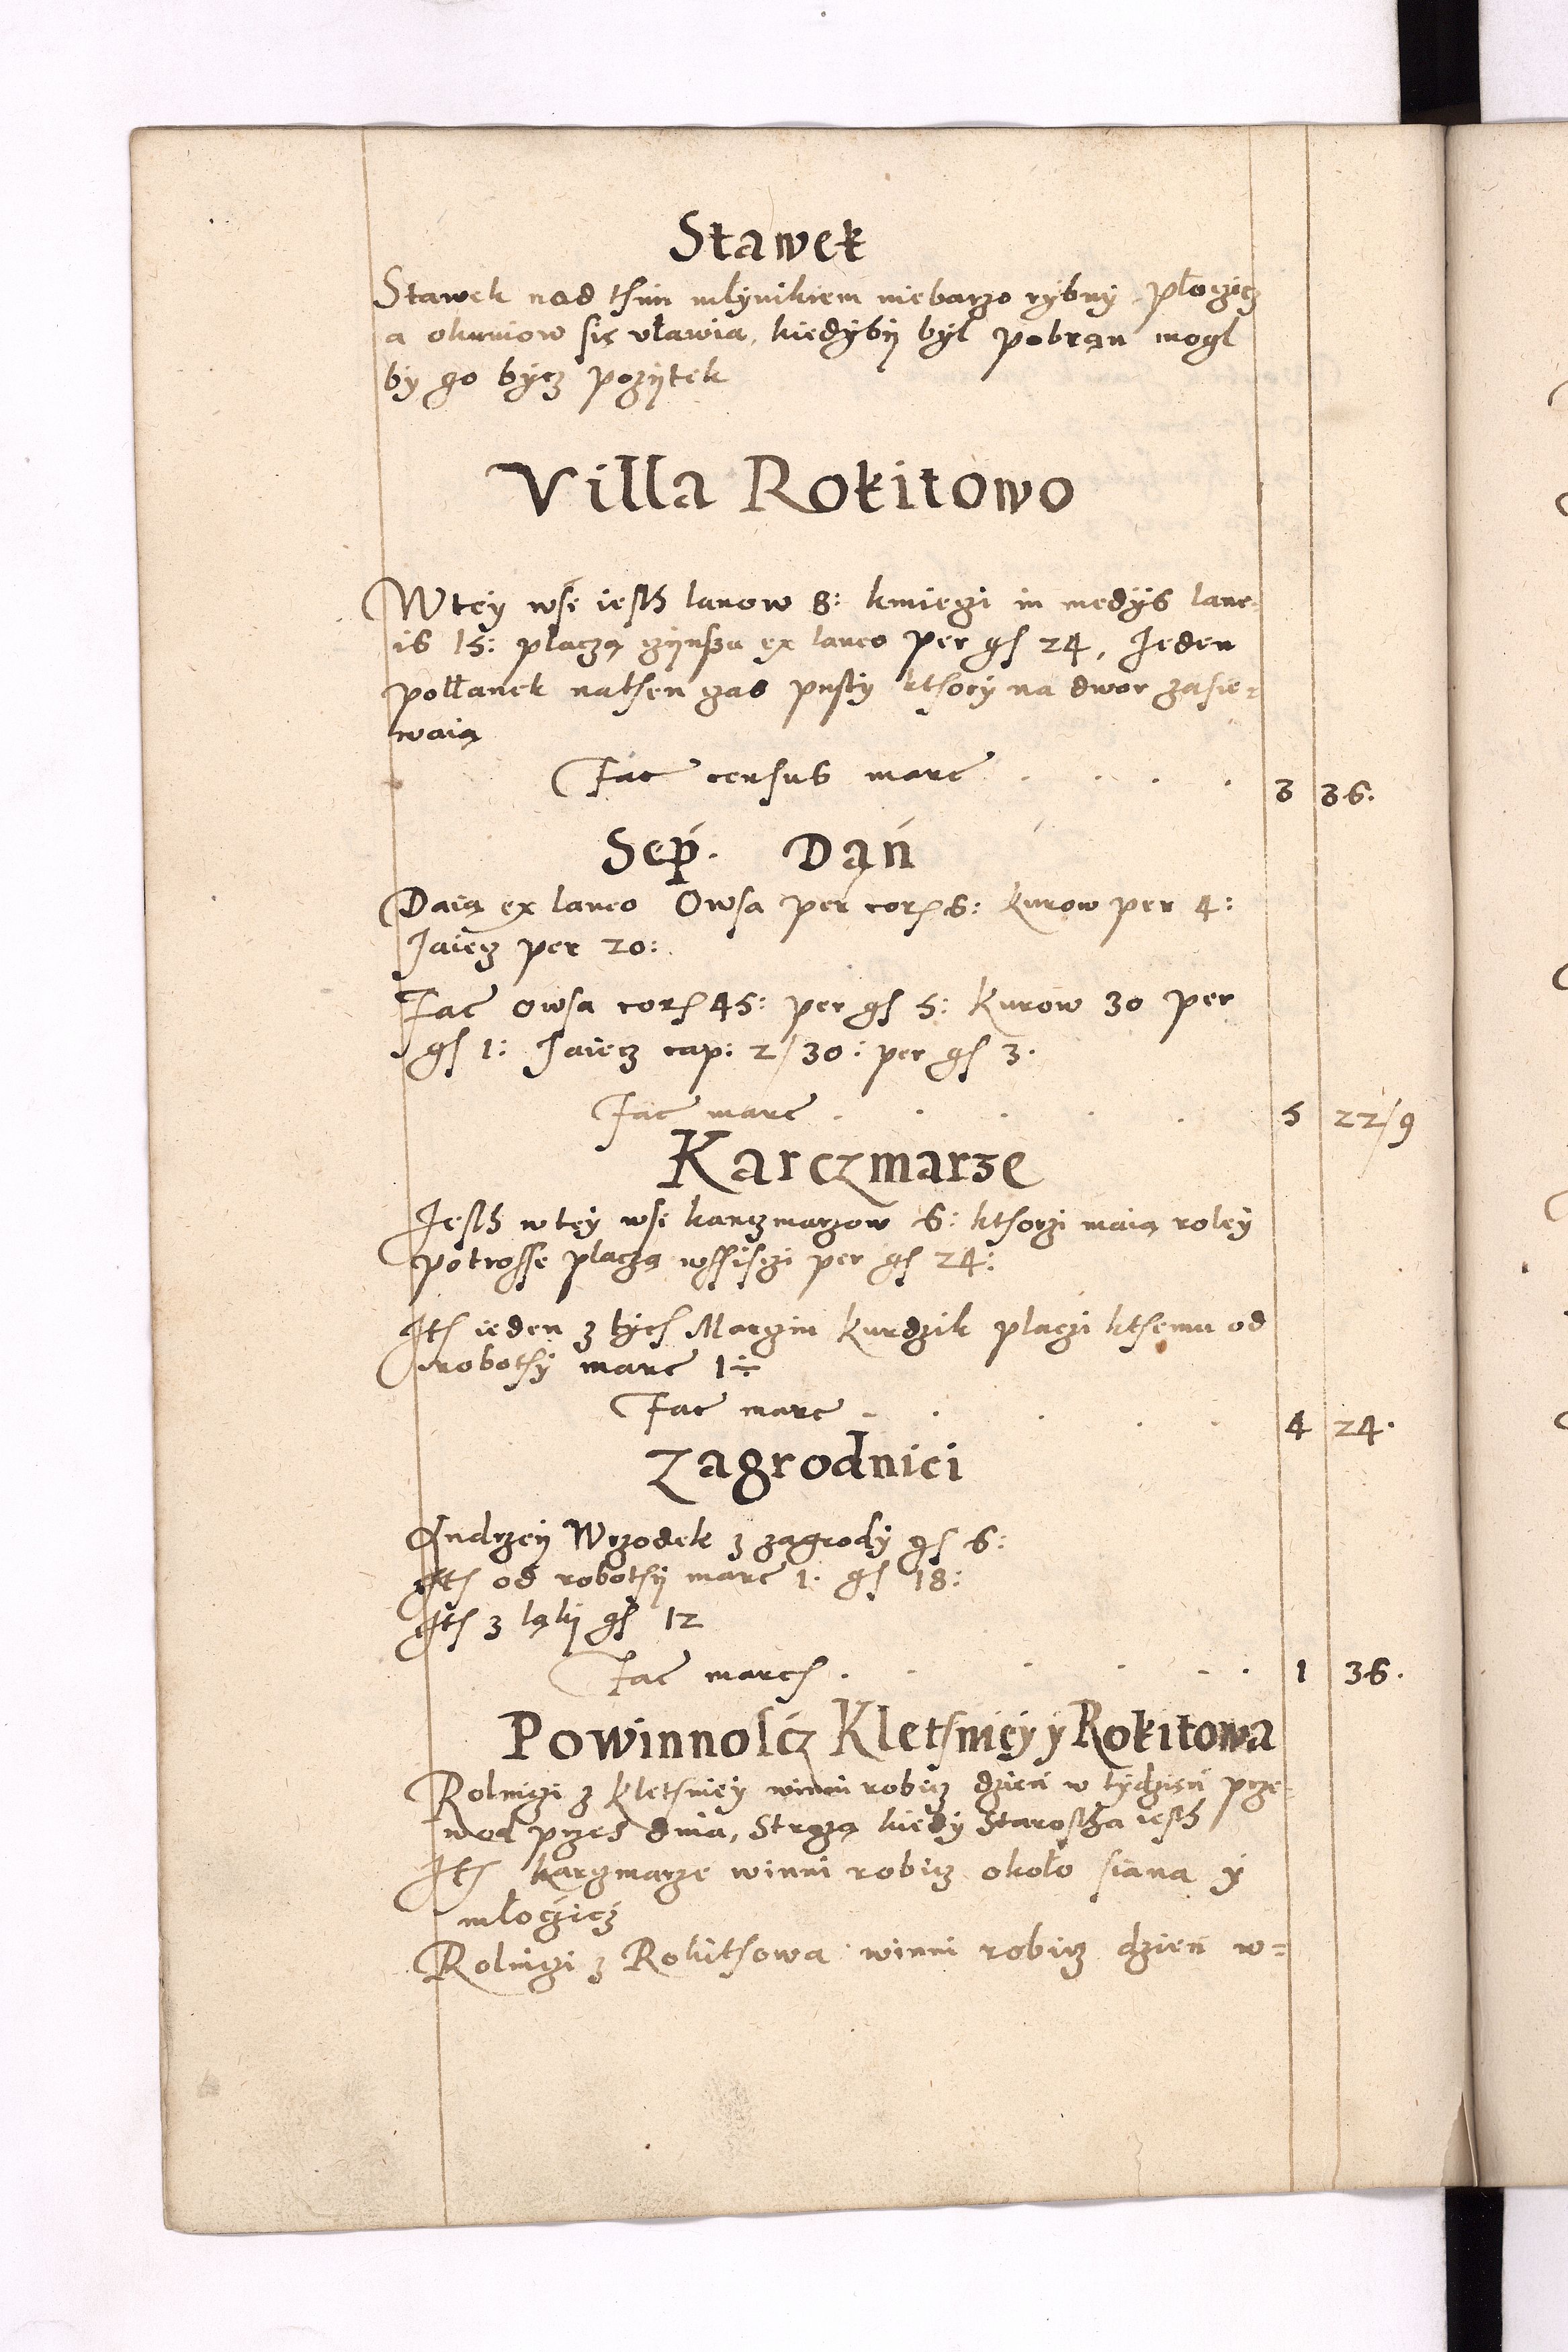 Stawek
Stawek nad thim młynikiem niebarzo rybny płoczicz
a okuniow się uławia, kiedyby był pobran mogl
by go bycz pozytek
Villa Rokitowo
W tey wsi iesth lanow 8: kmiezi in medys lane-
is 15: placzą czynszu ex laneo per gs 24, Jeden
połłanek nathen zas pusty kthory na dwor zasie-
waią
Fac census marc 3 36.
Sep. Dań
Daią ex laneo Owsa per cor 6: kurow per 4:
Jaiecz per 20:
Fac owsa cor 45: per gs 5: Kurow 30 per
gs 1: Jaiecz cap: 2/30: per gs 3.
Fac marc 5 22/9
Karczmarze
Jesth w tey wsi karczmarzow 6: kthorzi maią roley
potrosse placzą wssisczi per gs 24:
Ith ieden z tych Marczin Kurdzik placzi kthemu od
robothy marc 1÷
Fac marc 4 24.
Zagrodnici
Andrzey Wrzodek z zagrody gs 6:
Ith od robothy marc 1. gs 18:
Ith z łąki gs 12
Fac march 1 36.
Powinnoscz Klethnicy y Rokitowa
Rolniczi z Klethniey winni robicz dzień w tydzień prze-
wod przes dnia, Strożą kiedy Starostha iesth
Ith karczmarze winni robicz około siana y
młoczicz
Rolniczi z Rokithowa winni robicz dzien w-